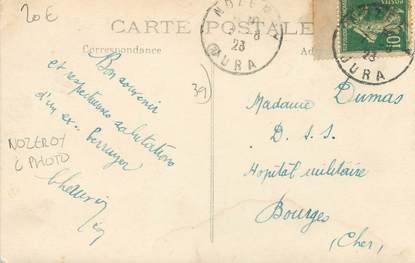 20€
CARTE POSTALE
Correspondance
NOZEROY
8
23
JURA
23
JURA
10
39
Bon souvenir
et respectueuses salutations
d'un ex.
NOZEROY
6 PHOTO
Madame Dumas
D. S. S.
Hopital militaire
Bourges
(Cher)